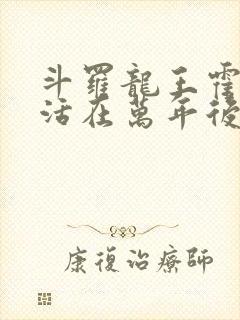 斗羅龍王霍
活在萬年後
康復治療師